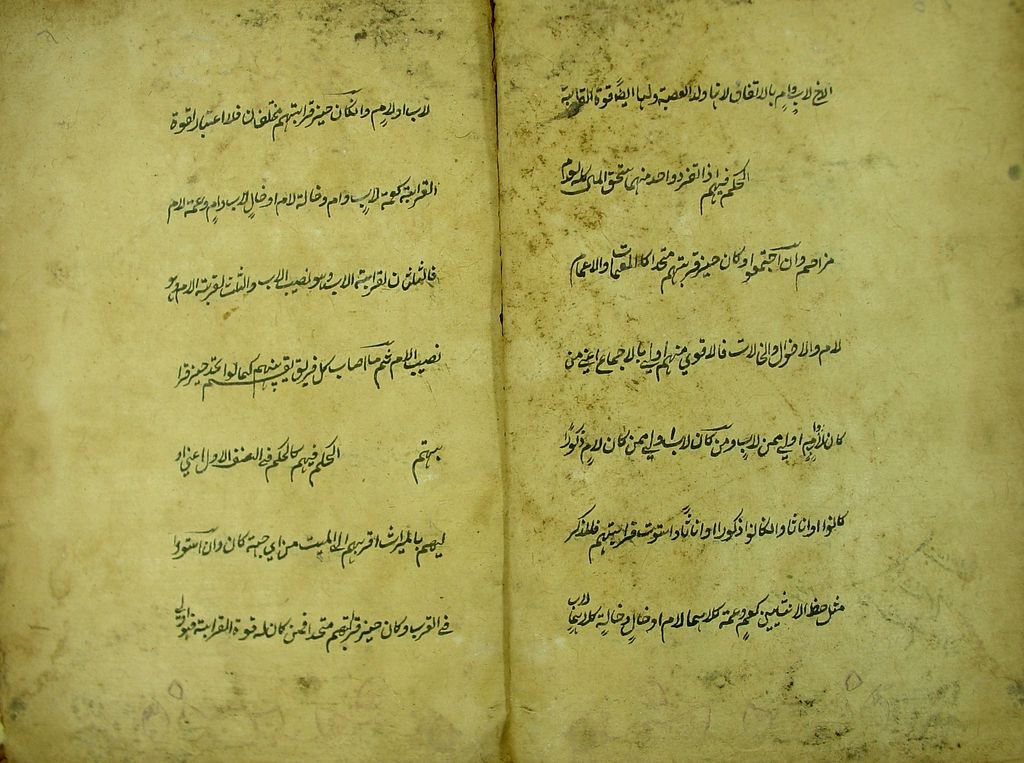 الاخ لاب وام بالاتفاق لانها ولد العصبة ولها ايضًا قوة القرابة
الحكم فيهم اذا انفرد واحد منهم استحق المال كله لعدم
مزاحم وان اجتمعوا وكان حيز قرابتهم متحدا كالعمات والاعمام
لام والاخوال والخالات فالاقوى منهم اولى بالاجماع اعني من
كان لاب وام اولى ممن لاب ومن كان لاب اولى ممن كان لام ذكورًا
كانوا او اناثا وان كانوا ذكورا او اناثًا واستوت قرابتهم فللذكر
مثل حظ الانثيين كعم وعمة كلاهما لام او خال وخالة كلاهما لاب
لاب او لام وان كان حيز قرابتهم مختلفان فلا اعتبار لقوة
القرابة كعمة لاب وام وخالة لام او خال لاب وام وعمة لام
فالثلثان لقرابة الاب وهو نصيب الاب والثلث لقرابة الام وهو
نصيب الام ثم ما اصاب كل فريق يقسم بينهم كما لو اتحد حيز قرا
بتهم الحكم فيهم كالحكم في الصنف الاول اعني او
ليهم بالميراث اقربهم الى الميت من اي جهة كان وان استووا
في القرب وكان حيز قرابتهم متحدا فمن كان له قوة القرابة فهو اولى